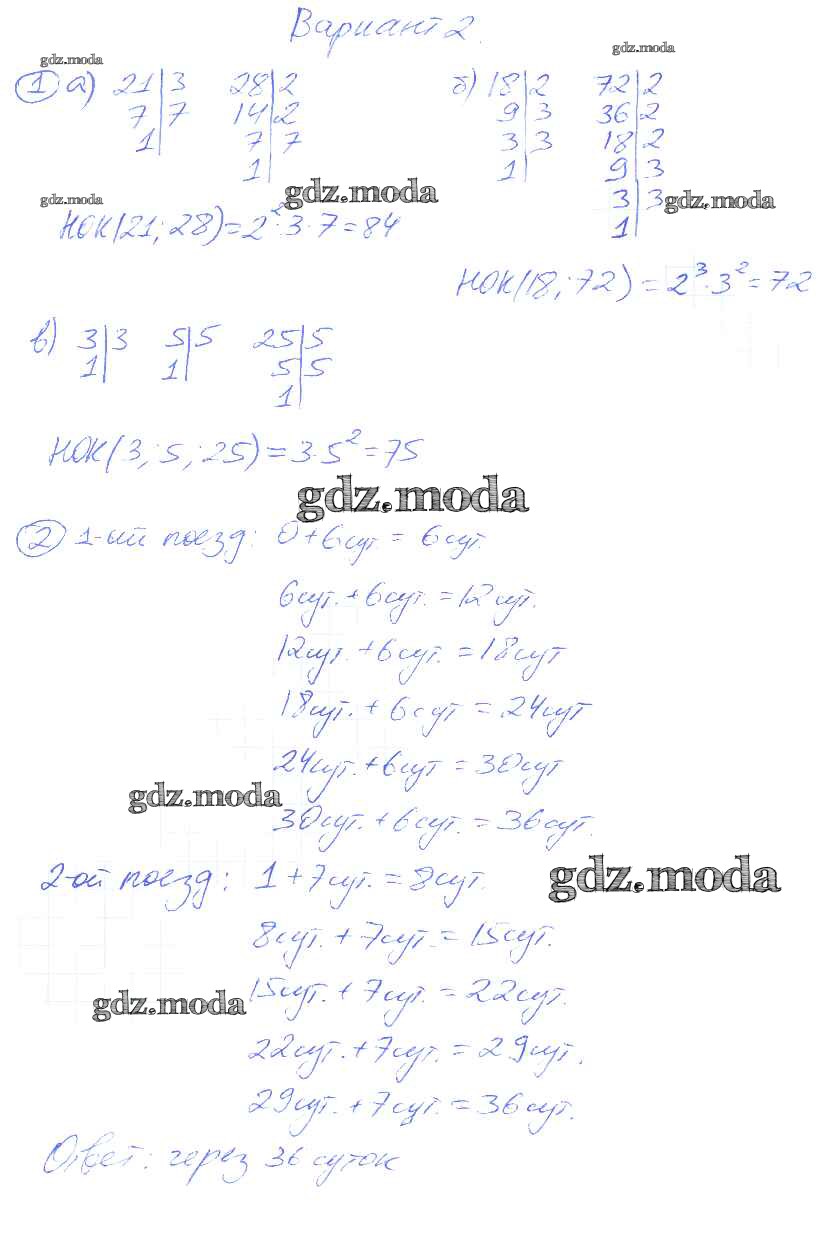 Вариант 2.
gdz.moda gdz.moda
1 а) 21|3 28|2 б) 18|2 72|2
7|7 14|2 9|3 36|2
1| 7|7 3|3 18|2
1| 1| 9|3
gdz.moda gdz.moda 3|3 gdz.moda
1|
НОК(21; 28) = 2²·3·7 = 84
НОК(18; 72) = 2³·3² = 72
в) 3|3 5|5 25|5
1| 1| 5|5
1|
НОК(3; 5; 25) = 3·5² = 75
gdz.moda
2 1-ый поезд: 0 + 6 сут. = 6 сут.
6 сут. + 6 сут. = 12 сут.
12 сут. + 6 сут. = 18 сут
18 сут. + 6 сут = 24 сут
24 сут. + 6 сут = 30 сут
gdz.moda
30 сут. + 6 сут. = 36 сут.
2-ой поезд: 1 + 7 сут. = 8 сут.
gdz.moda
8 сут. + 7 сут. = 15 сут.
gdz.moda
15 сут. + 7 сут. = 22 сут.
22 сут. + 7 сут. = 29 сут.
29 сут. + 7 сут. = 36 сут.
Ответ: через 36 суток